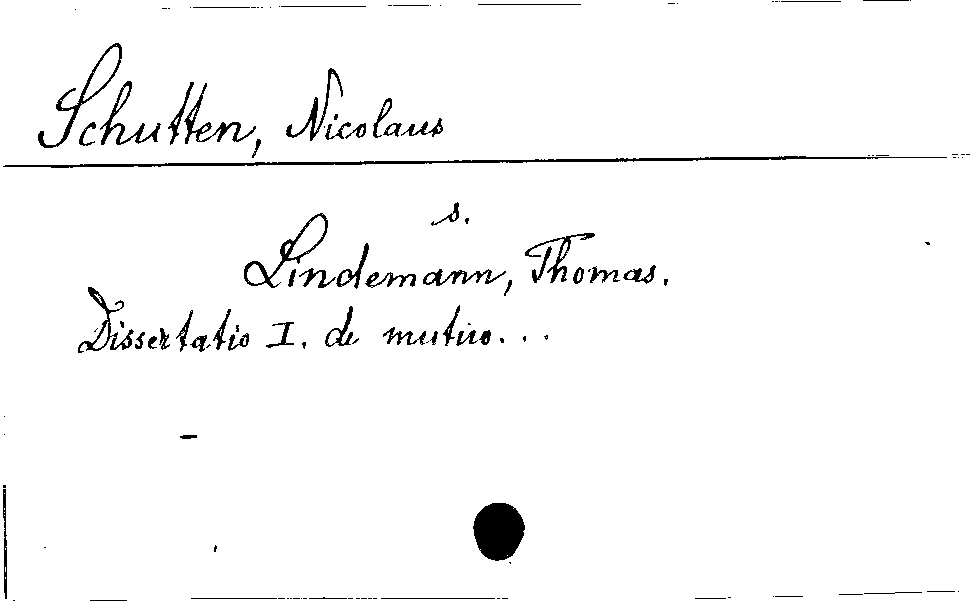 Schutten, Nicolaus
s.
Lindemann, Thomas.
Dissertatio I. de mutuo...